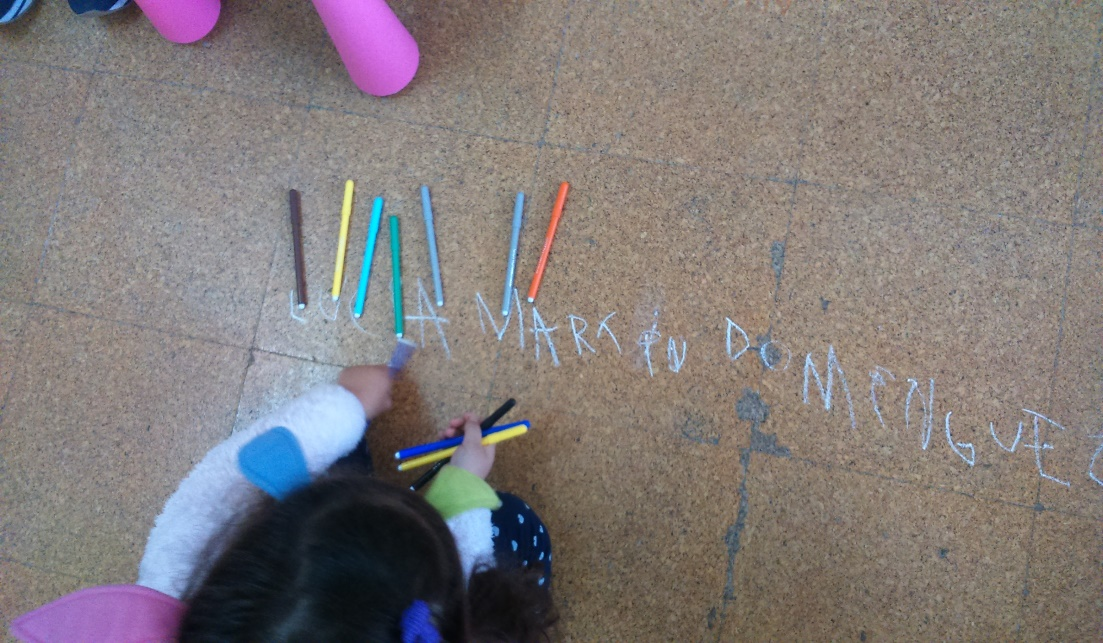 LUCIA MARTIN DOMENGUE